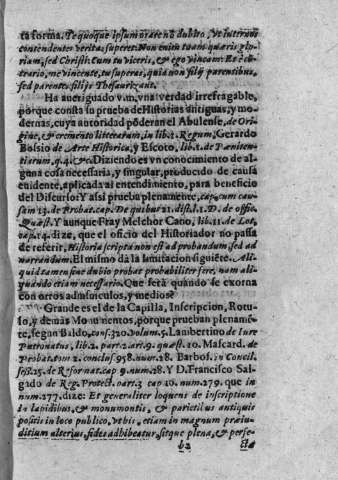 ta forma. Te quoque ipsum orare nõ dubito, vt interdũ
contendentes veritas superet: Non enim tuam quæris glo-
riam, sed Christi: Cum tu viceris, & ego vincam: Et è cõ-
trario, me vincente, tu superas, quia non filij parentibus,
sed parentes filijs Thesaurizant.
Ha aueriguado v.m. vna verdad irrefragable,
porque consta la prueba de Historias antiguas, y mo-
dernas, cuya autoridad põderan el Abulense, de Ori-
gine, & cremento litterarum, in lib. 2. Regum, Gerardo
Bossio de Arte Historica, y Escoto, lib. 1. de Pæniten-
tiarum, q. 4. &c. Diziendo es vn conocimiento de al-
guna cosa necessaria, y singular, producido de causa
euidente, aplicada al entendimiento, para beneficio
del Discurso: Y assi prueba plenamente, cap. cum cau-
sam 13. de Probat. cap. De quibus 21. dist. l. 1. D. de offic.
Quæst. Y aunque Fray Melchor Cano, lib. 11. de Loc.
cap. 4. dize, que el oficio del Historiador no passa
de referir, Historia scripta non est ad probandum, sed ad
narrandum. El mismo dà la limitacion siguiẽte. Ali-
quid tamen sine dubio probat probabiliter fere, nam ali-
quando etiam necessario. Que serà quando se exorna
con otros adminiculos, y medios?
Grande es el de la Capilla, Inscripcion, Rotu-
lo, y demàs Monumentos, porque prueban plename-
te, segun Baldo, cons. 320. volum. 5. Lambertino de Iure
Patronatus, lib. 2. part. 2. art. 9. quæst. 10. Mascard. de
Probat. tom. 2. conclus. 958. num. 28. Barbos. in Concil.
sess. 25. de Reformat. cap. 9. num. 28. Y D. Francisco Sal-
gado de Reg. Protect. part. 3. cap. 10. num. 279. que in
num. 277. dize: Et generaliter loquens de inscriptione
in lapidibus, & monumentis, & parietibus antiquis
positis in loco publico, vrbis, etiam in magnum præiu-
ditium alterius, fides adhibeatur, sitque plena, & perfe-
b2 cta